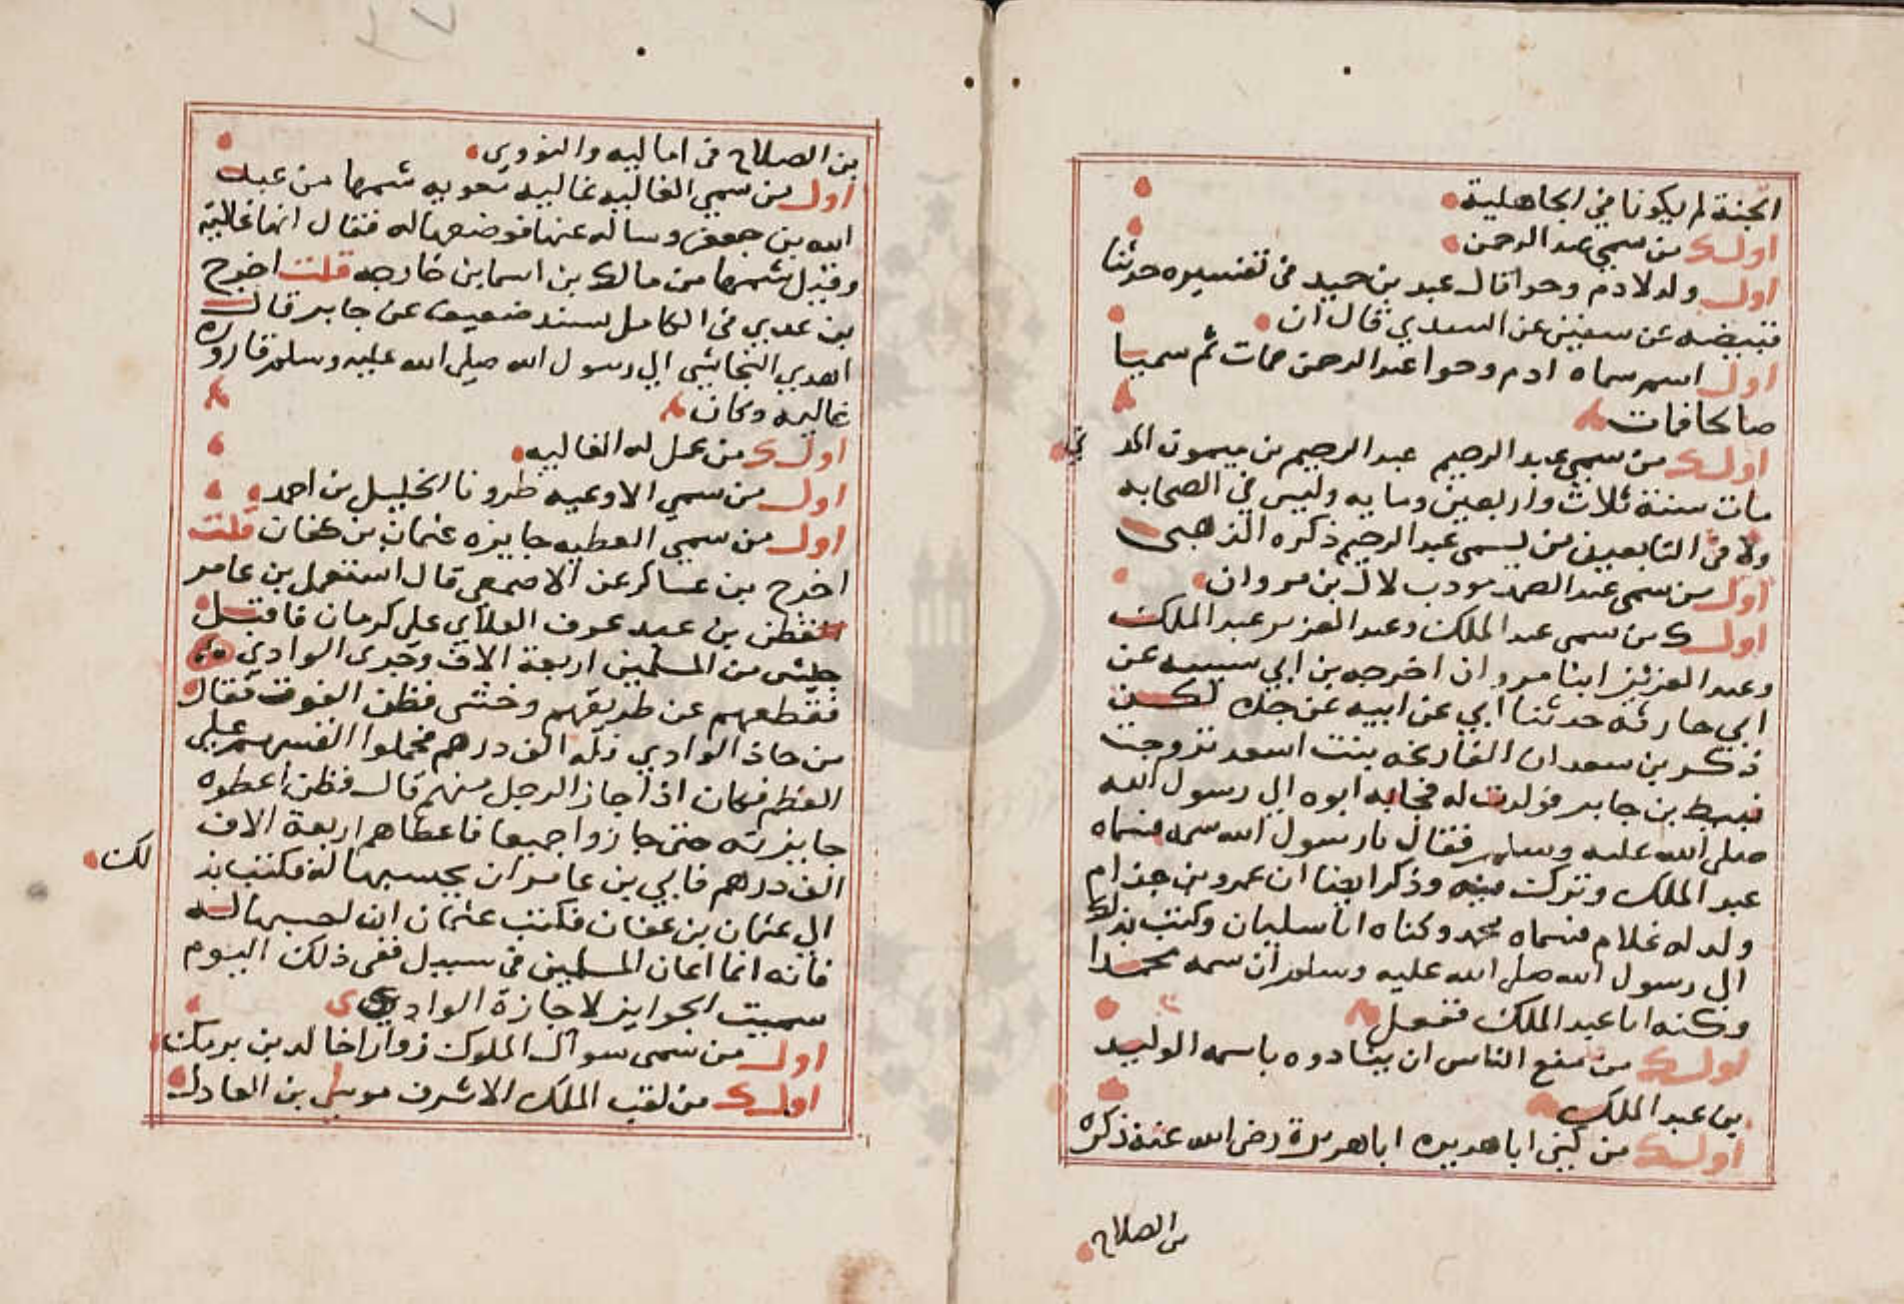 الجنة لم يكونا في الجاهلية
اول من سمي عبد الرحمن
اول ولد لادم وحوا قال عبد بن حميد في تفسيره حدثنا
قبيصه عن سفين عن السدي قال ان
اول اسم سماه ادم وحوا عبد الرحمن فمات ثم سميا
صالحا فمات
اول من سمي عبد الرحيم عبد الرحيم بن ميمون المد ني
مات سنة ثلاث واربعين ومايه وليس في الصحابه
ولا في التابعين من يسمى عبد الرحيم ذكره الذهبى
اول من سمى عبد الصمد مودب لال بن مروان
اول من سمى عبد الملك وعبد العزيز عبد الملك
وعبد العزيز ابنا مروان اخرجه بن ابي شيبه عن
ابي حارثه حدثنا ابي عن ابيه عن جده لكن
ذكر بن سعد ان الفارعه بنت اسعد تزوجت
نبيط بن جابر فولدت له فجابه ابوه الي رسول الله
صلى الله عليه وسلم فقال يارسول الله سمه فسماه
عبد الملك وتركت فيه وذكر ايضا ان عمرو بن حزام
ولد له غلام فسماه محمد وكناه ابا سليمان وكتب بذلك
الى رسول الله صلى الله عليه وسلم ان سمه محمدا
وكنه ابا عبد الملك ففعل
اول من منع الناس ان ينادوه باسمه الوليد
بن عبد الملك
اول من كني ابا هريره ابا هريرة رضى الله عنه ذكره
بن الصلاح
بن الصلاح في اماليه والنووي
اول من سمي الغاليه غاليه معويه شمها من عبد
الله بن جعفر وساله عنها فوضعها له فقال انها غالية
وقيل شمها من مالك بن اسما بن خارجه قلت اخرج
بن عدي في الكامل بسند ضعيف عن جابر قال
اهدي النجاشي الي رسول الله صلى الله عليه وسلم قاروره
غاليه وكان
اول من عمل له الغاليه
اول من سمي الاوعيه ظرونا الخليل بن احمد
اول من سمي العطيه جايزه عثمان بن عفان قلت
اخرج بن عساكر عن الاصمعي قال استعمل بن عامر
القطن بن عبد عوف الهلالي علي كرمان فاقبل
جيش من المسلمين اربعة الاف وجرى الوادي
فقطعهم عن طريقهم وخشى قطن الفوت فقال
من جاز الوادي فله الف درهم فحملوا انفسهم علي
العظم فكان اذا جاز الرجل منهم قال قطن اعطوه
جايزته حتى جازوا جميعا فاعطاهم اربعة الاف
الف درهم فابي بن عامر ان يحسبها له فكتب بذ لك
الي عثمان بن عفان فكتب عثمان ان احسبها له
فانه انما اعان المسلمين في سبيل ففى ذلك اليوم
سميت الجوايز لاجازة الوادي
اول من سمى سوال الملوك زوارا خالد بن برمك
اول من لقب الملك الاشرف موسى بن العادل